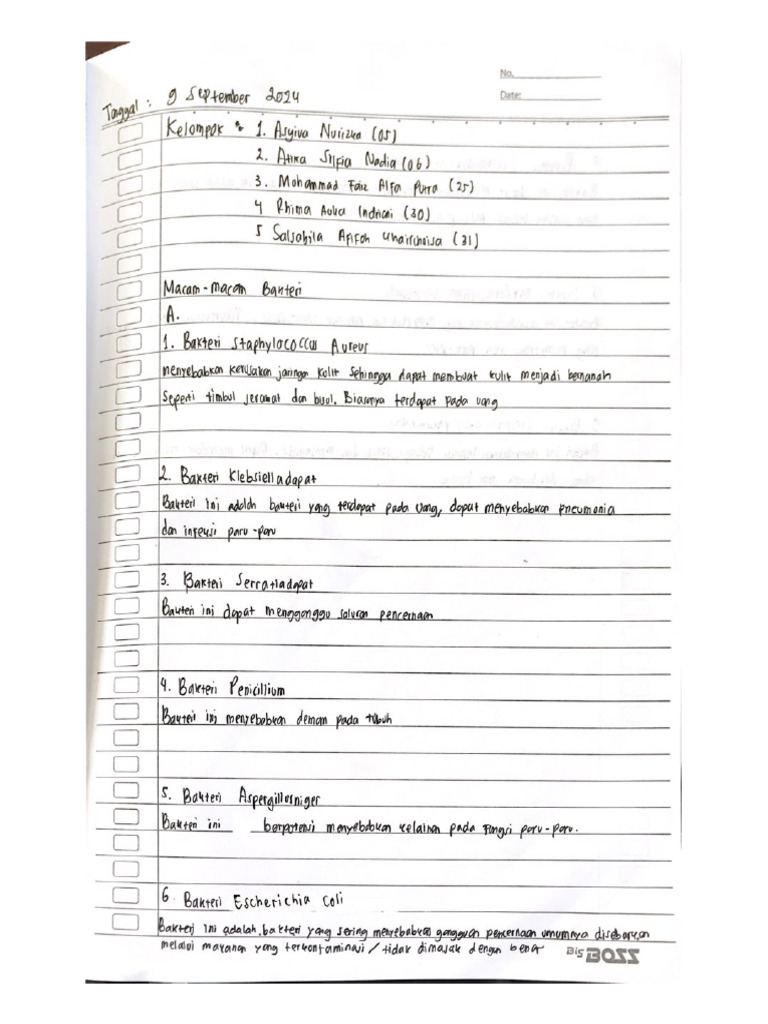 No.
Date:
Tanggal : 9 September 2024
Kelompok : 1. Asyiva Nuriska (05)
2. Atika Silfia Nadia (06)
3. Mohammad Faiz Alfa Putra (25)
4 Rhima Aulia Indriani (30)
5 Salsabila Afifah Khairunnisa (31)
Macam-macam Bakteri
A.
1. Bakteri Staphylococcus Aureus
menyebabkan kerusakan jaringan kulit sehingga dapat membuat kulit menjadi bernanah
seperti timbul jerawat dan bisul. Biasanya terdapat pada uang
2. Bakteri Klebsielladapat
Bakteri ini adalah bakteri yang terdapat pada uang, dapat menyebabkan pneumonia
dan infeksi paru-paru
3. Bakteri Serratiadapat
Bakteri ini dapat mengganggu saluran pencernaan
4. Bakteri Penicillium
Bakteri ini menyebabkan demam pada tubuh
5. Bakteri Aspergillosniger
Bakteri ini berpotensi menyebabkan kelainan pada fungsi paru-paru.
6. Bakteri Escherichia coli
Bakteri ini adalah bakteri yang sering menyebabkan gangguan pencernaan umumnya disebarkan
melalui makanan yang terkontaminasi / tidak dimasak dengan benar
Bis BOSS